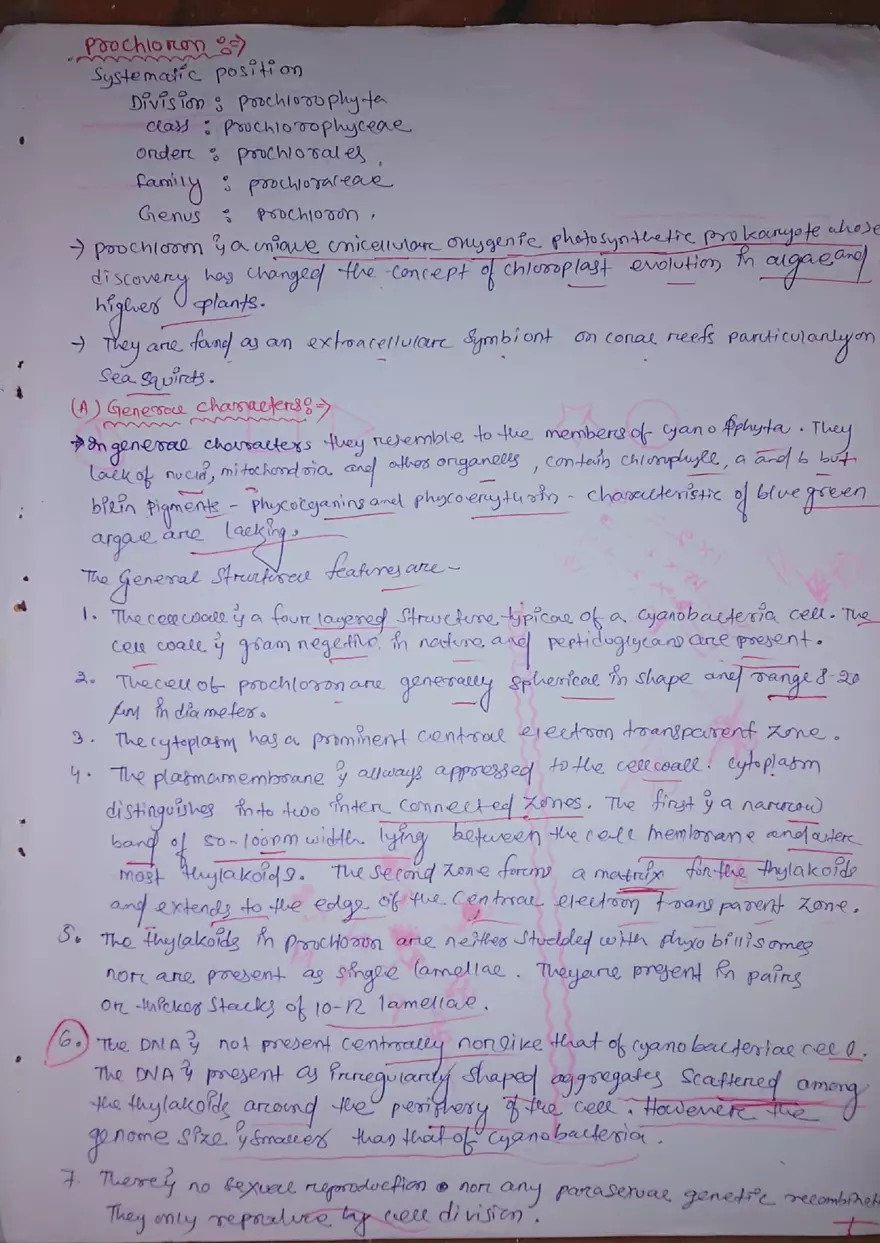 Prochloron :⇒
Systematic position
Division : prochlorophyta
class : prochlorophyceae
order : prochlorales,
family : prochloraceae
Genus : prochloron.
→ prochloron is a unique unicellular oxygenic photosynthetic prokaryote whose
discovery has changed the concept of chloroplast evolution in algae and
higher plants.
→ They are fand as an extracellular symbiont on coral reefs particularly on
sea squirts.
(A) General characters :⇒
→ In general characters they resemble to the members of cyanophyta. They
lack of nuclii, mitochondria and other organells, contain chlorophyll, a and b but
bilin pigments - phycocyanins and phycoerythrin - characteristic of blue green
argae are lacking.
The General structural features are -
1. The cell wall is a four layered structure typical of a cyanobacteria cell. The
cell wall is gram negetive in nature and peptidoglycans are present.
2. The cell of prochloron are generally spherical in shape and range 8-20
µm in diameter.
3. The cytoplasm has a prominent central electron transparent zone.
4. The plasmamembrane is allways appressed to the cell wall. cytoplasm
distinguishes into two inter connected zones. The first is a narrow
band of 50-100nm width lying between the cell membrane and outer
most thylakoids. The second zone forms a matrix for the thylakoids
and extends to the edge of the central electron transparent zone.
5. The thylakoids in prochloron are neither studded with phycobillisomes
nor are present as single lamellae. They are present in pairs
or thicker stacks of 10-12 lamellae.
6. The DNA is not present centrally nonlike that of cyanobacterial cell.
The DNA is present as irregularly shaped aggregates scattered among
the thylakoids around the periphery of the cell. However the
genome size is smaller than that of cyanobacteria.
7. There is no sexual reproduction nor any parasexual genetic recombinat
They only reproduce by cell division.